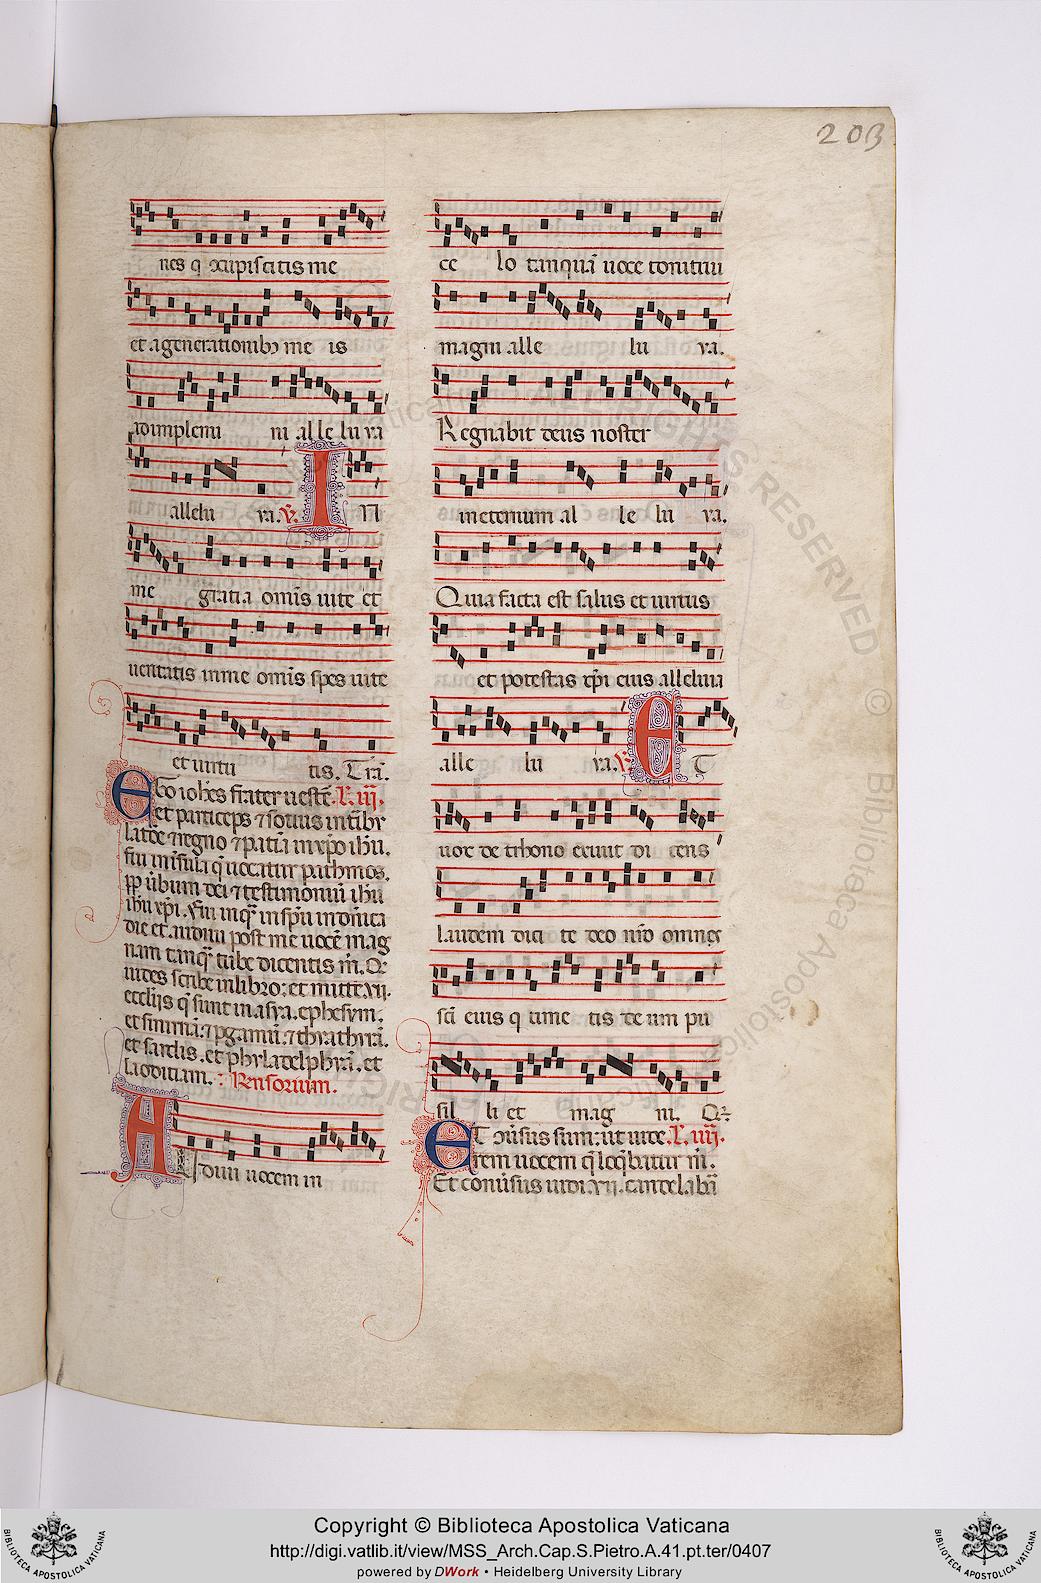 203
nes q ɔcupiscitis me
et a generationibꝰ me is
adimplemi ni alleluya
allelu ya. ℣. IN
me gratia omīs uite et
ueritatis in me omīs spes uite
et uirtu tis. Trā.
Ego ioħes frater uester. L. iii.
et particeps ⁊ sotius in tr̄ibu
latōe ⁊ regno ⁊ patīa in xp̄o ihū.
fui in īsula q̄ uocatur pathmos.
ꝓp ūbum dei ⁊ testimoniū ihū
ihū xp̄i. Fui in sp̄u in dn̄ica
die et audiui post me uocē mag
nam tanq̄ tube dicentis m̄. Q̄
uides scribe in libro: et mitte vii.
eccl̄iis q̄ sunt in asya. ephesum.
et smirnā: ⁊ ꝑgamū: ⁊ thyathirā.
et sardis. et phyladelphyā. et
laoditiam. Rensorium.
Audiui uocem in
ce lo tanquā uoce tonitruu
magni alle lu ya.
Regnabit deus noster
in eternum al le lu ya.
Quia facta est salus et uirtus
et potestas xp̄i eius alleluia
alle lu ya. ℣. ET
uox de throno exiuit di cens
laudem dici te deo nr̄o omnes
sc̄i eius q time tis deum pu
sil li et mag ni. Q̄
Et ɔuersus sum: ut uide. L. iiii.
rem uocem q̄ loq̄batur m̄.
Et conuersus uidi. vii. candelabra
ALL RIGHTS RESERVED © Biblioteca Apostolica Vaticana
Copyright © Biblioteca Apostolica Vaticana
http://digi.vatlib.it/view/MSS_Arch.Cap.S.Pietro.A.41.pt.ter/0407
powered by DWork • Heidelberg University Library
BIBLIOTECA APOSTOLICA VATICANA
BIBLIOTECA APOSTOLICA VATICANA